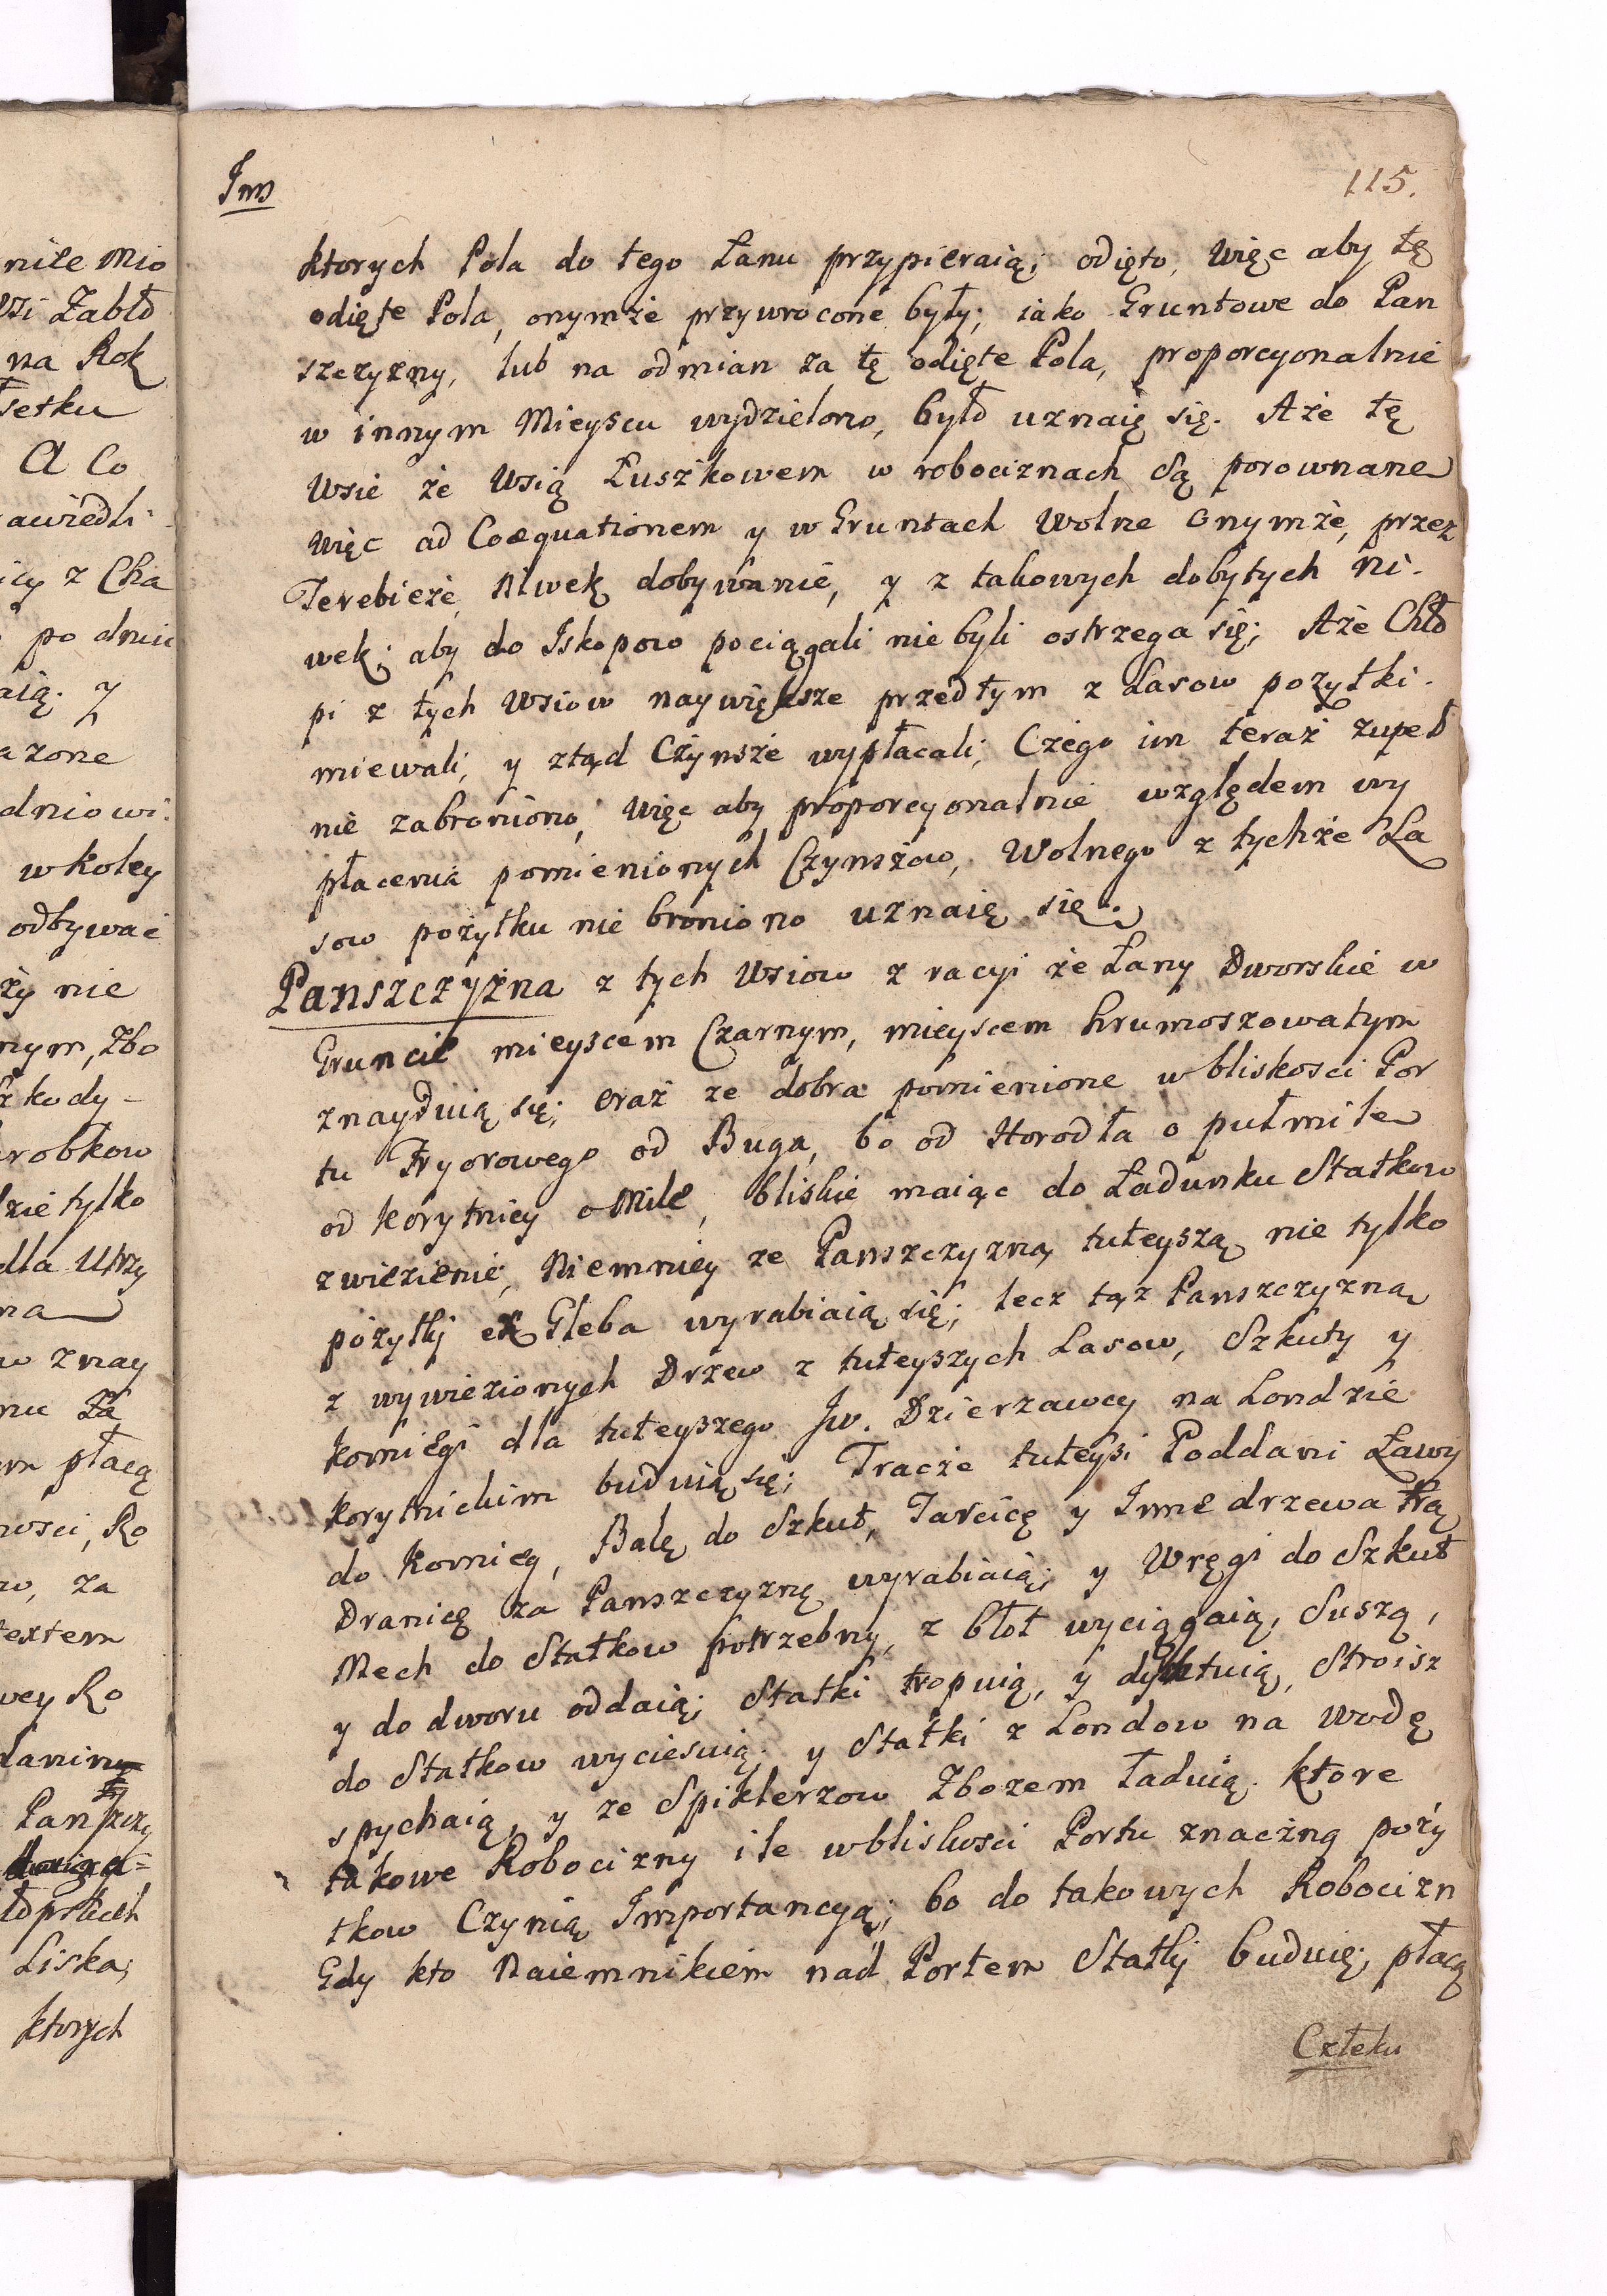 niłe Mio
wsi Zabło
na Rok
setku
A Co
awiedli
icy z Cha
po dniu
aią. y
azone
dniowi.
w koley
odbywać
ży nie
nym, Zbo
szkody-
arobkow
dzie tylko
dla Utrzy
na
w znay
nu Za
em płacą
wsci, Ro
w, za
textem
wey Ro
Panszczy
Liska;
ktorych
Jnw
115.
ktorych Pola do tego Łanu przypieraią; odięto, Więc aby tę
odięte Pola, onymże przywrocone były; iako Gruntowe do Pan
szczyzny, lub na odmian za tę odięte Pola, proporcyonalnie
w innym Mieyscu wydzielono, było uznaię się. Aże tę
Wsie że Wsią Łuszkowem w robociznach są porownane
więc ad Coæquationem y w Gruntach Wolne onymże, przez
Terebieże, Niwek dobywanie, y z takowych dobytych Ni-
wek; aby do Iskopow pociągali nie byli ostrzega się; Aże Chło
pi z tych Wsiow naywiększe przedtym z Lasow pożytki.
miewali, y ztąd Czynsze wypłacali; Czego im teraz zupeł
nie zabroniono; Więc aby proporcyonalnie względem wy
płacenia pomienionych Czynszow, Wolnego z tychże La
sow pożytku nie broniono uznaię się.
Panszczyzna z tych Wsiow z racyi że Łany Dworskie w
Gruncie mieyscem Czarnym, mieyscem hrumoszowatym
znayduią się; oraz ze dobra pomienione w bliskosci Por
tu Fryorowego od Buga, bo od Horodła o pułmile
od Korytnicy o Mile, bliskie maiąc do Ładunku Statkow
zwiezienie, Niemniey ze Panszczyzną tuteyszą nie tylko
pożytki ex Gleba wyrabiaią się; lecz tąz Panszczyzną
z wywiezionych Drzew z tuteyszych Lasow, Szkuty y
Komiegi dla tuteyszego Jw. Dzierzawcy na Londzie
Korytnickim buduią się; Tracże tuteysi Poddani Ławy
do Komieg, Balę do Szkut, Tarcicę y Inne drzewa trą
Dranicę za Panszczyznę wyrabiaią; y Wręgi do Szkut
Mech do Statkow potrzebny, z błot wyciągaią, Suszą,
y do dworu oddaią; Statki tropuią, y dychtuią, Stroisz
do Statkow wyciesuią; y Statki z Londow na Wodę
spychaią, y ze Spiklerzow Zbozem Ładuią. ktore
takowe Robocizny ile w bliskosci Portu znaczną poży
tkow Czynią Importancyą; bo do takowych Robocizn
Gdy kto Naiemnikiem nad Portem Statki buduię; płacą
Człeku